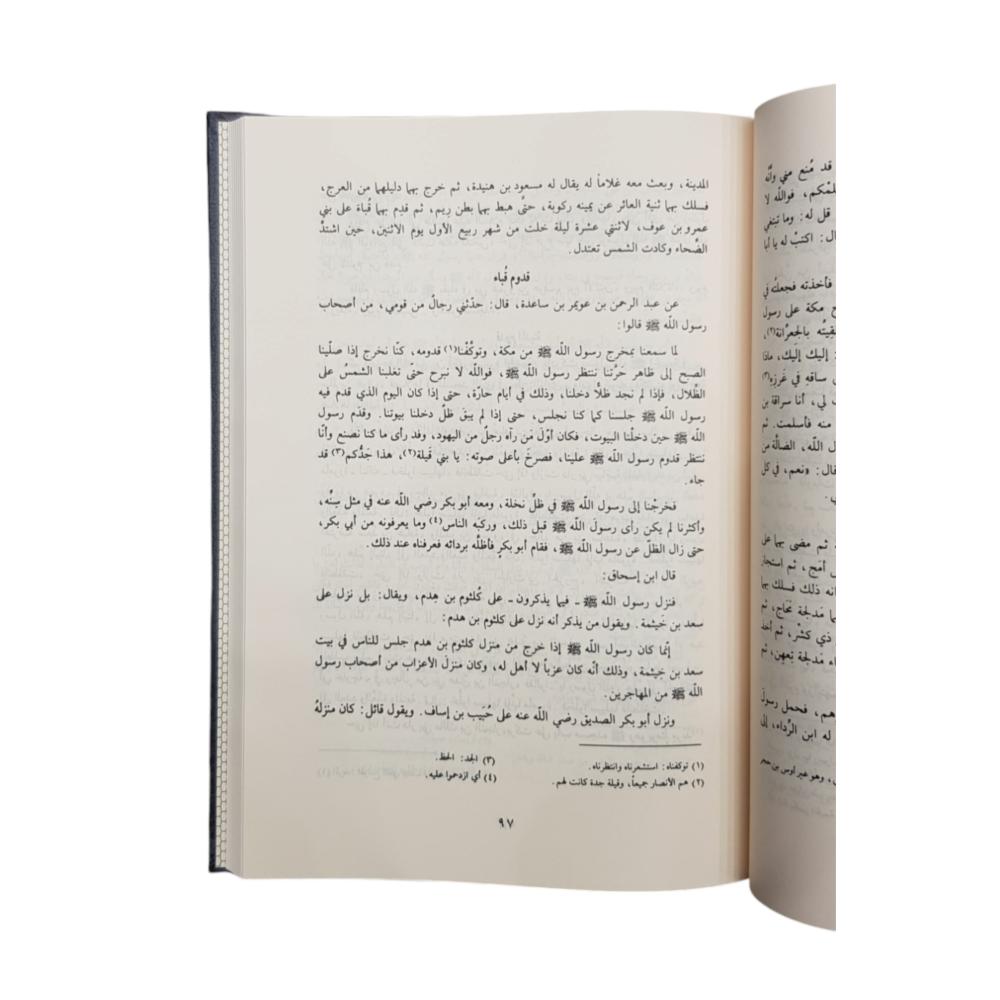 المدينة، وبعث معه غلاماً له يقال له مسعود بن هنيدة، ثم خرج بهما دليلهما من العرج،
فسلك بهما ثنية العائر عن يمينه ركوبة، حتَّى هبط بهما بطن رِيم، ثم قدِم بهما قُباءَ على بني
عمرو بن عوف، لاثنتي عشرة ليلة خلت من شهر ربيع الأول يوم الاثنين، حين اشتدَّ
الضَّحاء وكادت الشمس تعتدل.
قدوم قُباء
عن عبد الرحمن بن عويمر بن ساعدة، قال: حدّثني رجالٌ من قومي، من أصحاب
رسول اللّه ﷺ قالوا:
لما سمعنا بمخرج رسول اللّه ﷺ من مكة، وتوكَّفْنا(١) قدومه، كنّا نخرج إذا صلّينا
الصبح إلى ظاهر حَرَّتنا ننتظر رسول اللّه ﷺ، فواللّه لا نبرح حتّى تغلبنا الشمسُ على
الظِّلال، فإذا لم نجد ظلًّا دخلنا، وذلك في أيام حارّة، حتى إذا كان اليوم الذي قدم فيه
رسول اللّه ﷺ جلسنا كما كنا نجلس، حتى إذا لم يبقَ ظلٌّ دخلنا بيوتنا. وقدَم رسول
اللّه ﷺ حين دخلْنا البيوت، فكان أوّلَ مَن رآه رجلٌ من اليهود، وقد رأى ما كنا نصنع وأنّا
ننتظر قدوم رسول اللّه ﷺ علينا، فصرخَ بأعلى صوته: يا بني قَيلة(٢)، هذا جَدُّكم(٣) قد
جاء.
فخرجْنا إلى رسول اللّه ﷺ في ظلِّ نخلة، ومعه أبو بكر رضي اللّه عنه في مثل سِنِّه،
وأكثرنا لم يكن رأى رسولَ اللّه ﷺ قبل ذلك، وركبَه الناس(٤) وما يعرفونه من أبي بكر،
حتى زال الظلّ عن رسول اللّه ﷺ، فقام أبو بكرٍ فأظلَّه بردائه فعرفناه عند ذلك.
قال ابن إسحاق:
فنزل رسول اللّه ﷺ ـ فيما يذكرون ـ على كُلثوم بن هِدم، ويقال: بل نزل على
سعد بن خيثمة. ويقول من يذكر أنه نزل على كلثوم بن هدم:
إنّما كان رسول اللّه ﷺ إذا خرج من منزل كلثوم بن هدم جلس للناس في بيت
سعد بن خيثمة، وذلك أنَّه كان عزباً لا أهل له، وكان منزلَ الأعزاب من أصحاب رسول
اللّه ﷺ من المهاجرين.
ونزل أبو بكر الصديق رضي اللّه عنه على خُبَيب بن إساف. ويقول قائل: كان منزلهُ
(١) توكفناه: استشعرناه وانتظرناه.
(٢) هم الأنصار جميعاً، وقيلة جدة كانت لهم.
(٣) الجد: الحظ.
(٤) أي ازدحموا عليه.
٩٧
قد مُنع مني وأنَّه
فواللّه لا
قل له: وما تبتغي
اكتبْ له يا أبا
فأخذته فجعلتُه في
مكة على رسول
بالجِعرانة(٢)،
إليك إليك، ماذا
ساقه في غَرزه(٣)
لي، أنا سراقة بن
منه فأسلمت. ثم
اللّه، الضالّة من
«نعم، في كل
ثم مضى بهما على
أمَج، ثم استجاز
ذلك فسلك بهما
مَدلجة
ذي كشْر، ثم أخذ
مَدلجة تِعهِن، ثم
فحمل رسولَ
له ابن الرِّداء، إلى
وهو عير أوس بن حجر